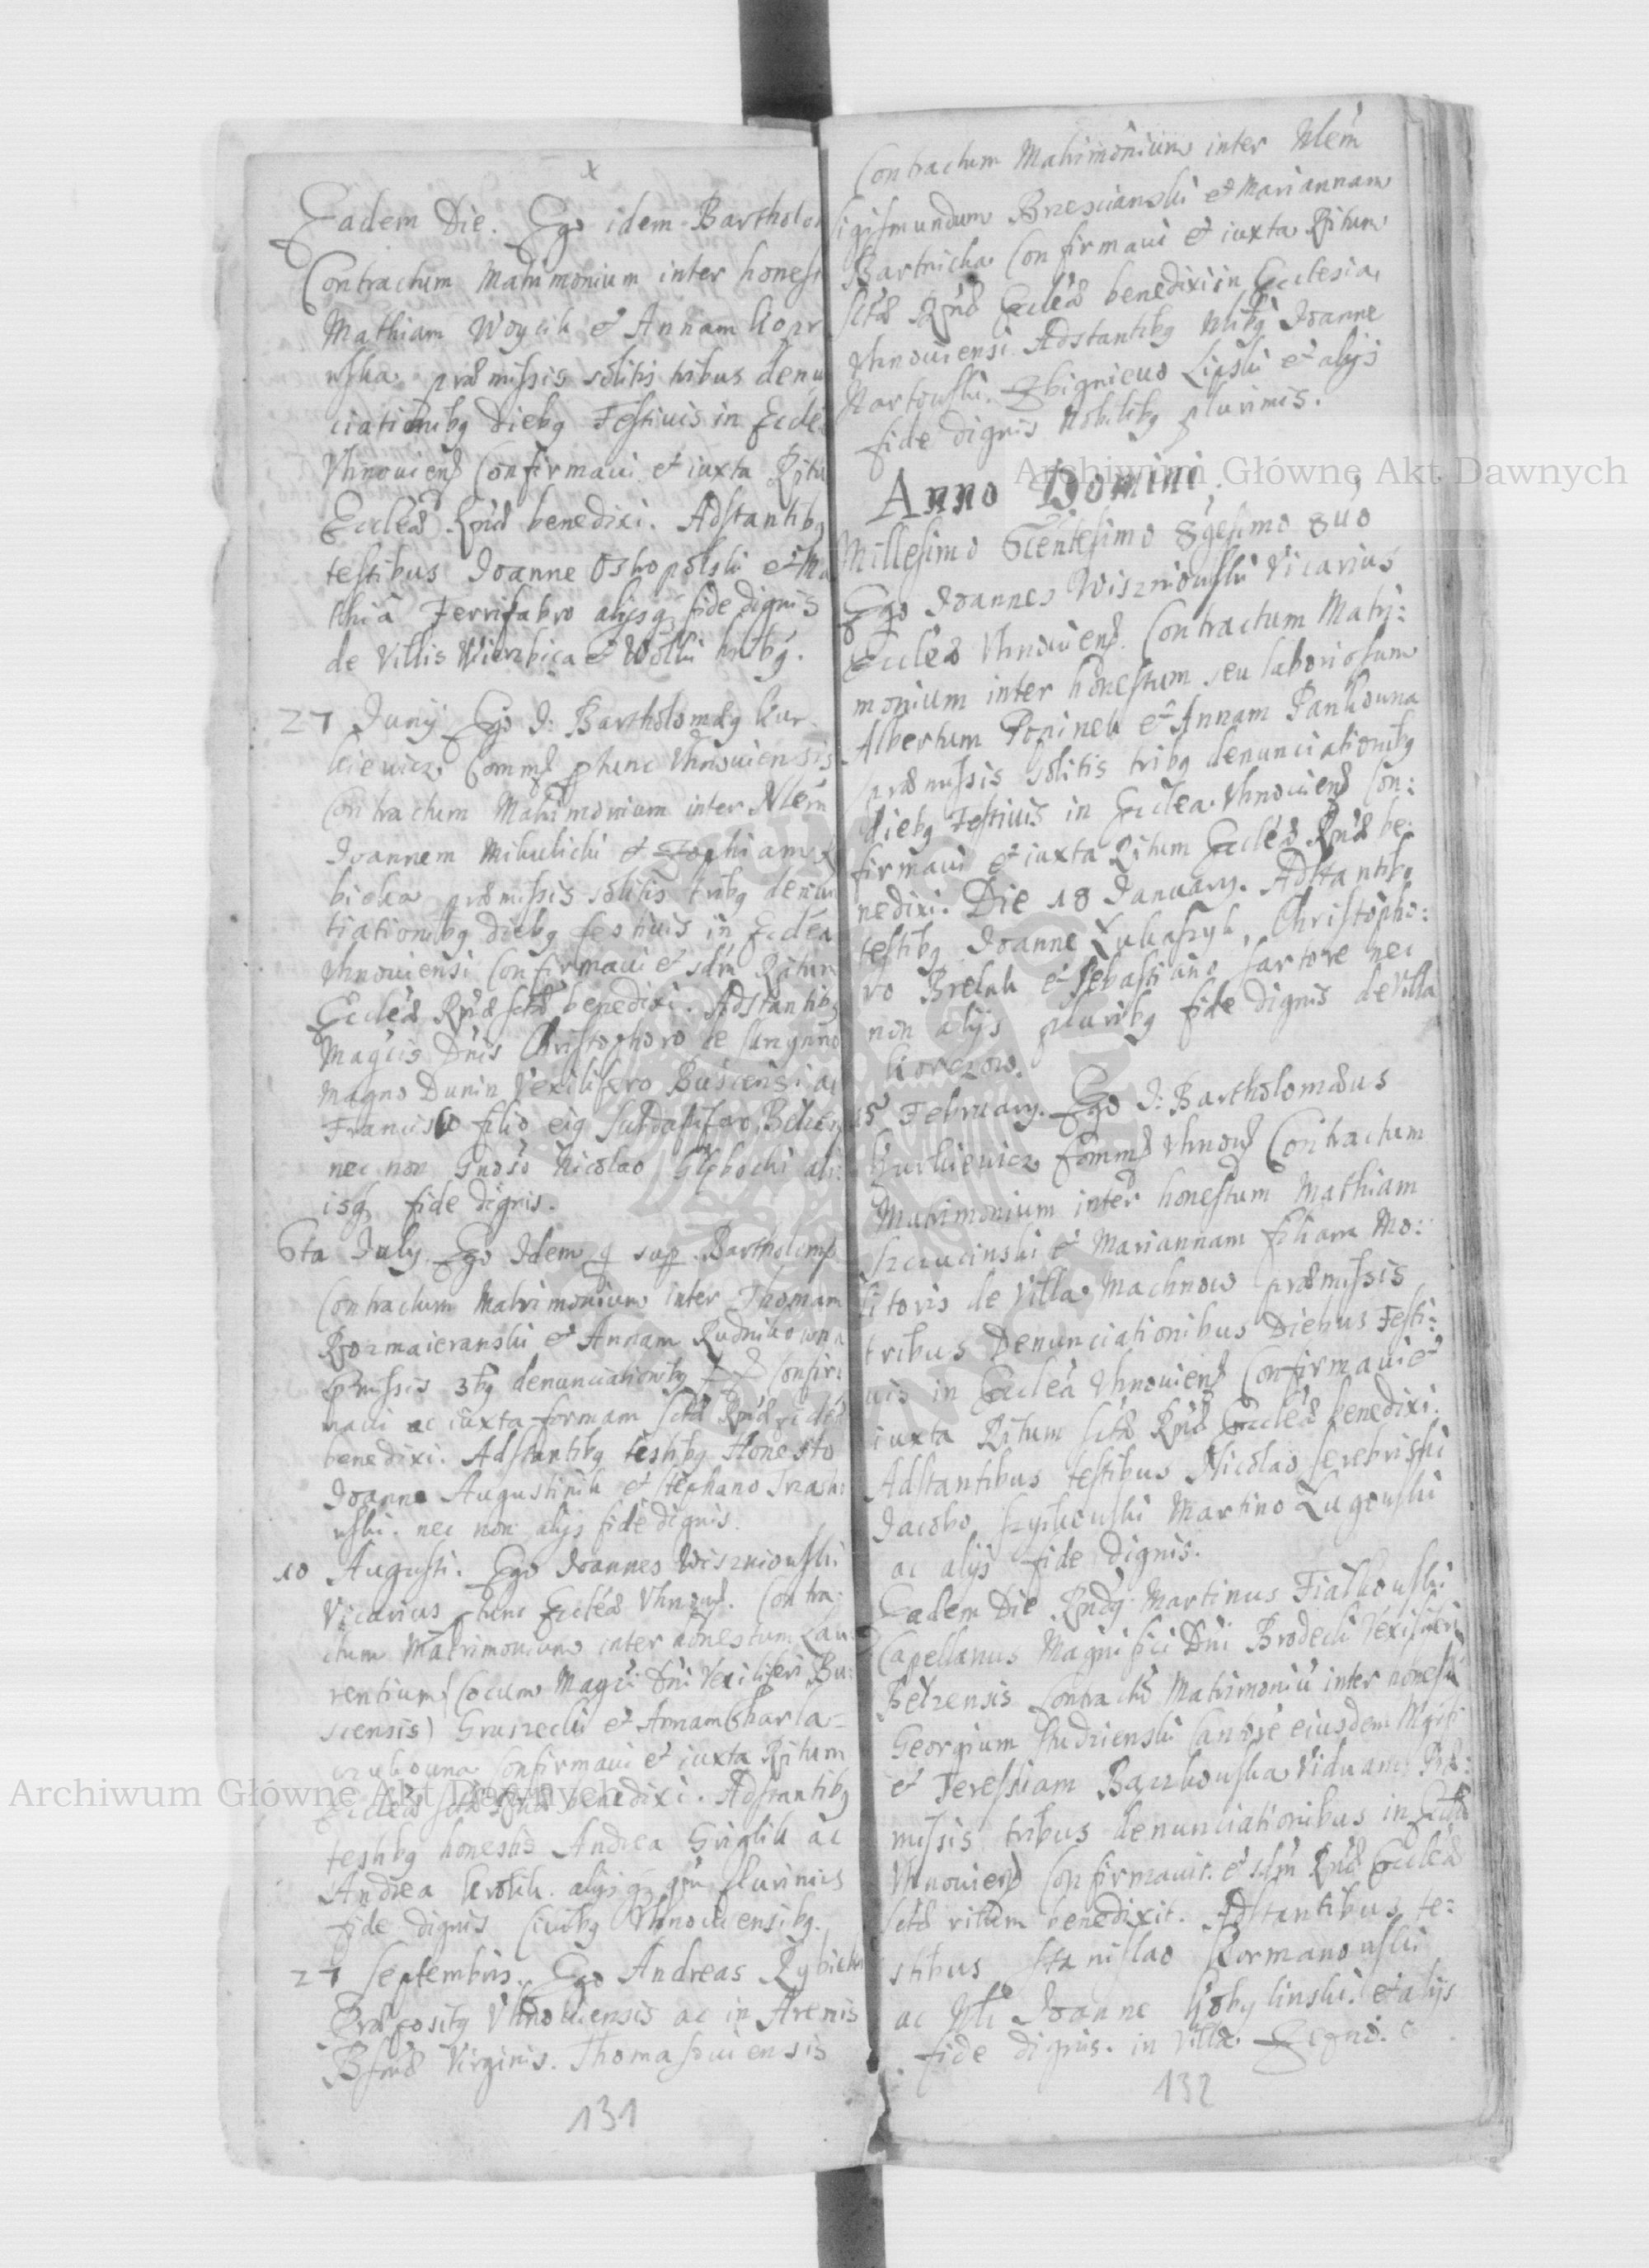 x
Eadem Die. Ego idem Bartholo
Contractum Matrimonium inter honest
Mathiam Woycik et Annam Kopr
uska præmissis solitis tribus denu
ciationibg diebg Festivis in Eccle
Vhnouiens Confirmaui et iuxta Ritu
Eccleæ Rnæ benedixi. Adstantibg
testibus Joanne Ostropolski et Ma
thia Ferrifabro alijsq fide dignis
de Villis Wierzbica et Wolki
27 Junij Ego J: Bartholomæg Kur
kiewicz Comms ptunc Vhnouiensis
Contractum Matrimonium inter Nlem
Joannem Mikulicki et Zophiam
præmissis solitis tribg denun
tiationibg diebg festiuis in Ecclea
Vhnouiensi Confirmaui et sdm Ritum
Eccleæ Rnæ sctæ benedixi. Adstantibg
Magcis Dnis Christophoro de
magno Dunin Vexillifero Buscensi ac
Francisco filio eig Belzen
nec non Gnoso Nicolao Głębocki ali:
isq fide dignis.
6ta July. Ego Idem q sup. Bartholomg
Contractum Matrimonium inter Thomam
Rozmaieranski et Annam Rudnikowna
pmissis 3bg denunciationibg Confir:
maui ac iuxta formam sctæ Rnæ Eccleæ
benedixi. Adstantibg testibg Honesto
Joanne Augustinik et Stephano
uski. nec non alijs fide dignis.
10 Augusti. Ego Joannes Wiszniouski
Vicarius ptunc Eccleæ Vhnous. Contra:
ctum Matrimonium inter honestum Lau:
rentium (Cocum Magci Dni Vexiliferi Bu:
scensis) Gruszecki et Annam Charla=
czukouna Confirmaui et iuxta Ritum
Eccleæ sctæ Rnæ benedixi. Adstantibg
testibg honestis Andrea Griglik ac
Andrea Krolik. alijsq plurimis
fide dignis Ciuibg Vhnouiensibg.
27 Septembris. Ego Andreas Rybicki
Præpositg Vhnouiensis ac in Arenis
Virginis. Thomasouiensis
131
Contractum Matrimonium inter Nlem
Sigismundum Brzescianski et Mariannam
Bartnicka Confirmaui et iuxta Ritum
sctæ Rnæ Eccleæ benedixi in Ecclesia
Vhnouiensi. Adstantibg Nlibg Joanne
Nartouski. Zbigneuo Lipski et alijs
fide dignis Nobilibg plurimis.
Anno Domini,
Millesimo 6centesimo 8gesimo 8uo
Ego Joannes Wiszniouski Vicarius
Eccleæ Vhnouiens. Contractum Matri:
monium inter honestum seu laboriosum
Albertum Popinek et Annam Pankouna
præmissis solitis tribg denunciationibg
diebg Festiuis in Ecclea Vhnouiens Con:
firmaui et iuxta Ritum Eccleæ Rnæ be:
nedixi. Die 18 January. Adstantibg
testibg Joanne Lukaszyk, Christopho:
ro Brelak et Sebastiano sartore nec
non alijs pluribg fide dignis de Villa
Korczow.
15 February. Ego J: Bartholomæus
Kurkiewicz Comms Vhnous Contractum
Matrimonium inter honestum Mathiam
Szczucinski et Mariannam filiam Mo:
litoris de Villa Machnow præmissis
tribus Denunciationibus Diebus Festi:
uis in Ecclea Vhnouiens Confirmaui et
iuxta Ritum sctæ Rnæ Eccleæ benedixi.
Adstantibus testibus Nicolao Serebriski
Jacobo Szyszkouski Martino Lugouski
ac alijs fide dignis.
Eadem Die Rndg Martinus Fialkouski
Capellanus Magnifici Dni Brodecki Vexiliferi
Belzensis Contractu Matrimoniu inter honestu
Georgium Studzienski eiusdem Mgfi
et Teressiam Barzkouska Viduam Præ:
missis tribus denunciationibus in Eccleæ
Vhnouiens Confirmauit. et sdm Rnæ Eccleæ
sctæ ritum benedixit. Adstantibus te:
stibus Stanislao Kormanouski
ac Nli Joanne Kobylinski. et alijs
fide dignis. in Villa
132
Archiwum Główne Akt Dawnych
Archiwum Główne Akt Dawnych